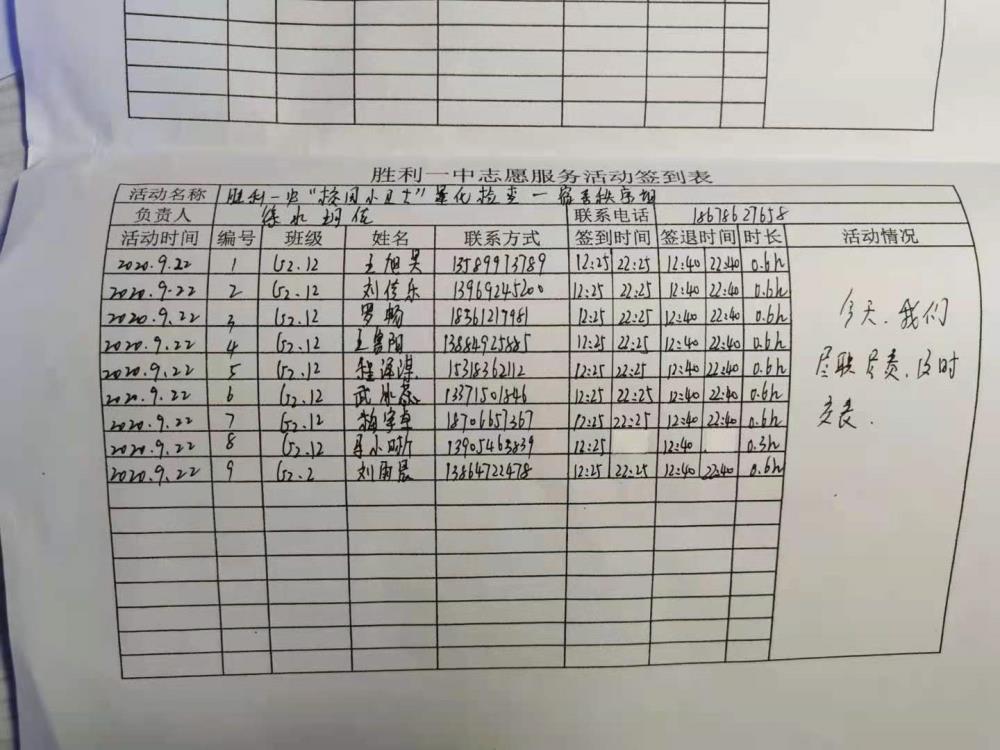 胜利一中志愿服务活动签到表
活动名称 胜利一中“校园小卫士”量化检查一宿舍秩序组
负责人 联系电话 18678627658
活动时间 编号 班级 姓名 联系方式 签到时间 签退时间 时长 活动情况
2020.9.22 1 G2.12 王旭昊 13589973789 12:25 22:25 12:40 22:40 0.6h
2020.9.22 2 G2.12 刘佳乐 13969245200 12:25 22:25 12:40 22:40 0.6h
2020.9.22 3 G2.12 罗畅 12:25 22:25 12:40 22:40 0.6h
2020.9.22 4 G2.12 王鲁阳 13884925885 12:25 22:25 12:40 22:40 0.6h
2020.9.22 5 G2.12 15318362112 12:25 22:25 12:40 22:40 0.6h
2020.9.22 6 G2.12 13371501846 12:25 22:25 12:40 22:40 0.6h
2020.9.22 7 G2.12 18706657367 12:25 22:25 12:40 22:40 0.6h
2020.9.22 8 G2.12 13905463839 12:25 12:40 0.3h
2020.9.22 9 G2.2 刘雨晨 13864722478 12:25 22:25 12:40 22:40 0.6h
今天,我们
尽职尽责,及时
交表.